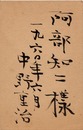 阿部知二様
一九六六年六月
中野重治